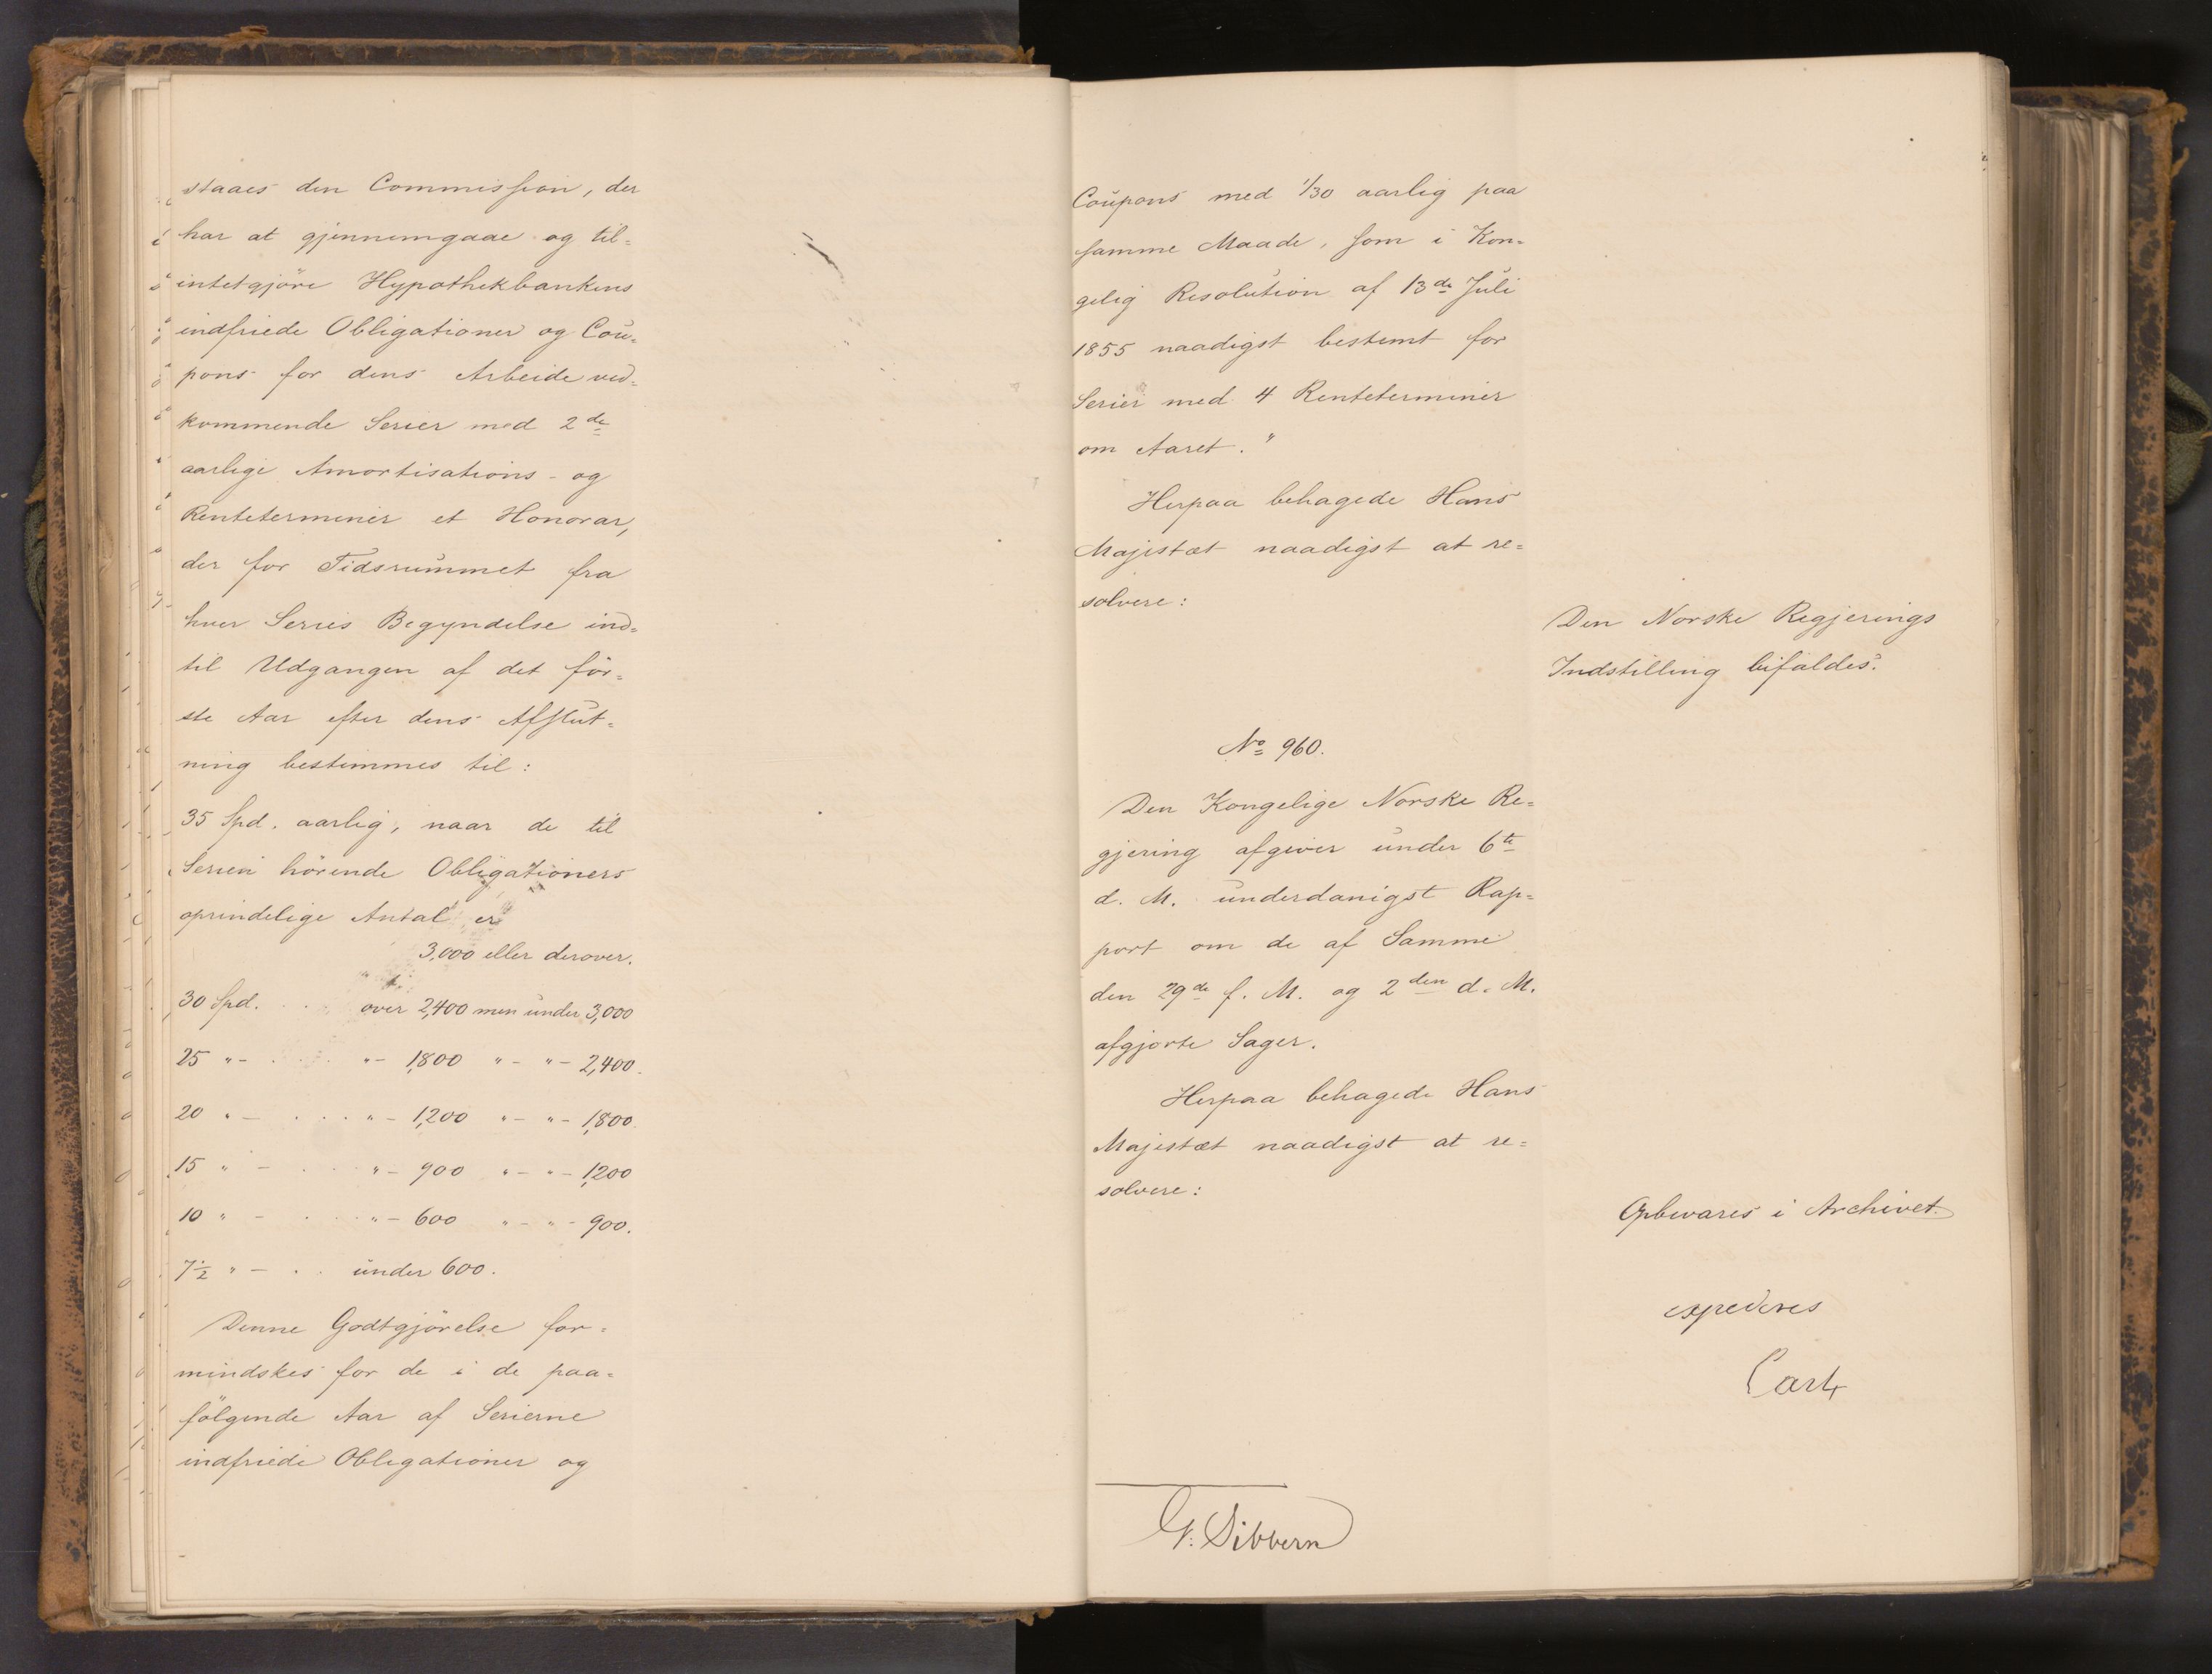 staaes den Commission, der
har at gjennemgaae og til=
intetgjöre Hypothekbankens
indfriede Obligationer og Cou=
pons for dens Arbeide ved=
kommende Serier med 2de
aarlige Amortisations- og
Renteterminer et Honorar,
der for Tidsrummet fra
hver Series Begyndelse ind=
til Udgangen af det för=
ste Aar efter dens Afslut=
ning bestemmes til:
35 Spd. aarlig, naar de til
Serien hörende Obligationers
oprindelige Antal er
3,000 eller derover.
30 Spd. . . over 2,400 men under 3,000
25 "- . . . "- 1,800 "- "- 2,400.
20 "- . . . "- 1,200 "- "- 1,800.
15 "- . . "- 900 "- "- 1,200
10 "- . . "- 600 "- "- 900.
7½ "- . . under 600.
Denne Godtgjörelse for=
mindskes for de i de paa=
fölgende Aar af Serierne
indfriede Obligationer og
Coupons med 1/30 aarlig paa
samme Maade, som i Kon=
gelig Resolution af 13de Juli
1855 naadigst bestemt for
Serier med 4 Renteterminer
om Aaret."
Herpaa behagede Hans
Majestæt naadigst at re=
solvere:
Den Norske Regjerings
Indstilling bifaldes.
No 960.
Den Kongelige Norske Re=
gjering afgiver under 6te
d. M. underdanigst Rap=
port om de af Samme
den 29de f. M. og 2den d. M.
afgjorte Sager.
Herpaa behagede Hans
Majestæt naadigst at re=
solvere:
Opbevares i Archivet.
expederes
Carl
G. Sibbern